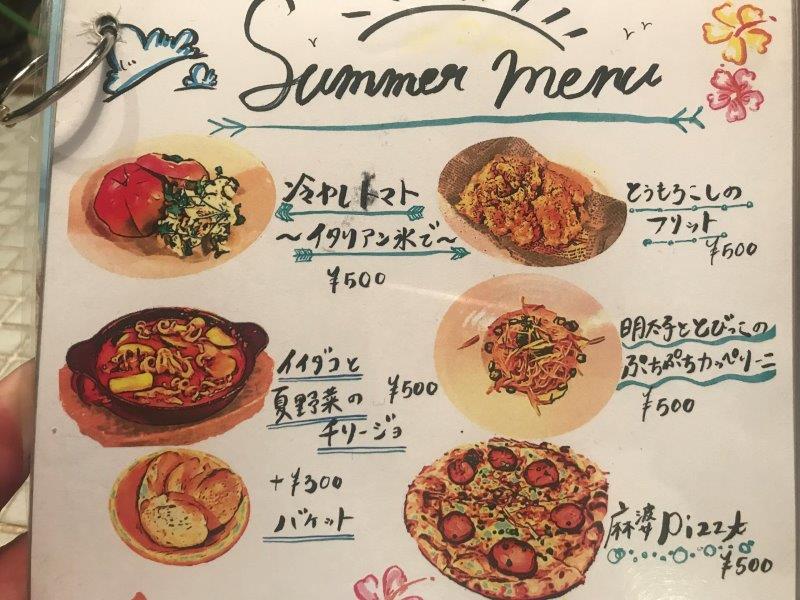 Summer menu
冷やしトマト
～イタリアン氷で～
¥500
とうもろこしの
フリット
¥500
イイダコと
夏野菜の
チリージョ
¥500
明太子ととびっこの
ぷちぷちカッペリーニ
¥500
+¥300
バケット
麻婆pizza
¥500